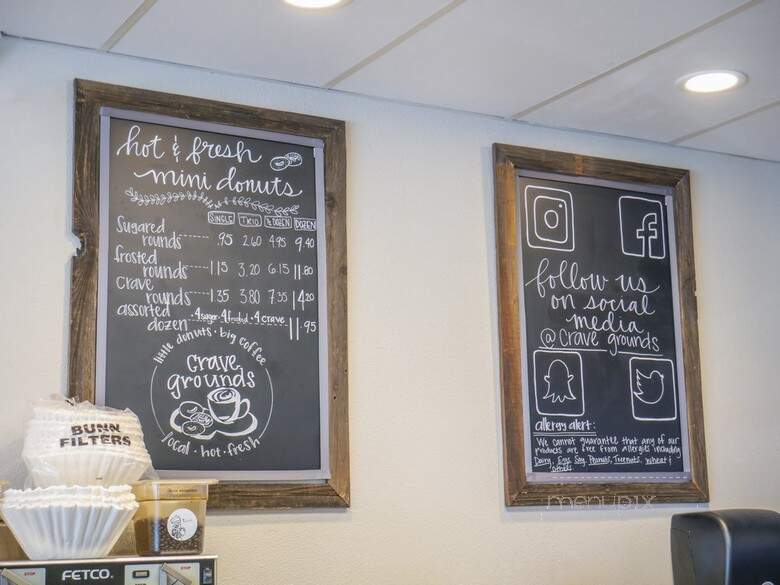 hot & fresh
mini donuts
SINGLE TRIO ½ DOZEN DOZEN
Sugared
rounds .95 2.60 4.95 9.40
frosted
rounds 1.15 3.20 6.15 11.80
crave
rounds 1.35 3.80 7.35 14.20
assorted
dozen • 4 sugar • 4 • 4 crave 11.95
little donuts • big coffee
crave
grounds
local • hot • fresh
follow us
on social
media
@ crave grounds
allergy alert:
We cannot guarantee that any of our
products are free from allergies including
Dairy, Egg, Soy, Peanuts, Treenuts, wheat &
others
menupix
BUNN
FILTERS
FETCO